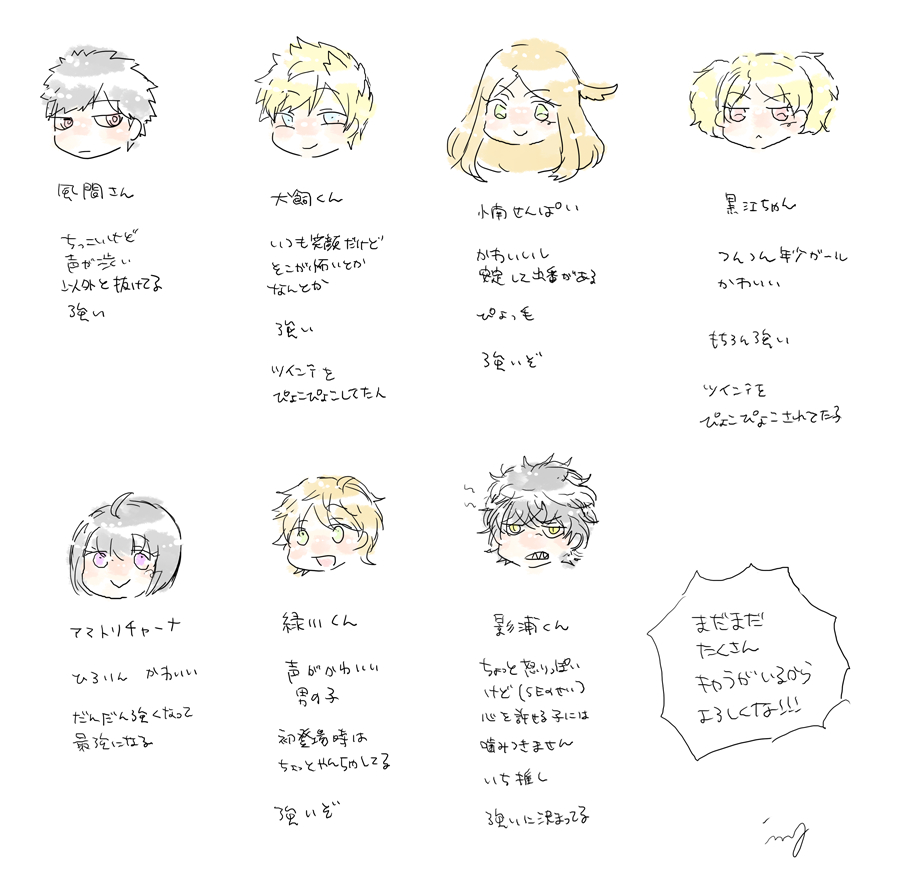 風間さん
ちっこいけど
声が渋い
以外と抜けてる
強い
犬飼くん
いつも笑顔だけど
そこが怖いとか
なんとか
強い
ツインテを
ぴょこぴょこしてたん
小南せんぱい
かわいいし
安定して出番がある
ぴょっ毛
強いぞ
黒江ちゃん
つんつん年少ガール
かわいい
もちろん強い
ツインテを
ぴょこぴょこされてたろ
アマトリチャーナ
ひろいん かわいい
だんだん強くなって
最強になる
緑川くん
声がかわいい
男の子
初登場時は
ちょっとやんちゃしてる
強いぞ
影浦くん
ちょっと怒りっぽい
けど(SEのせい)
心を許せる子には
噛みつきません
いち推し
強いに決まってる
まだまだ
たくさん
キャラがいるから
よろしくな!!!